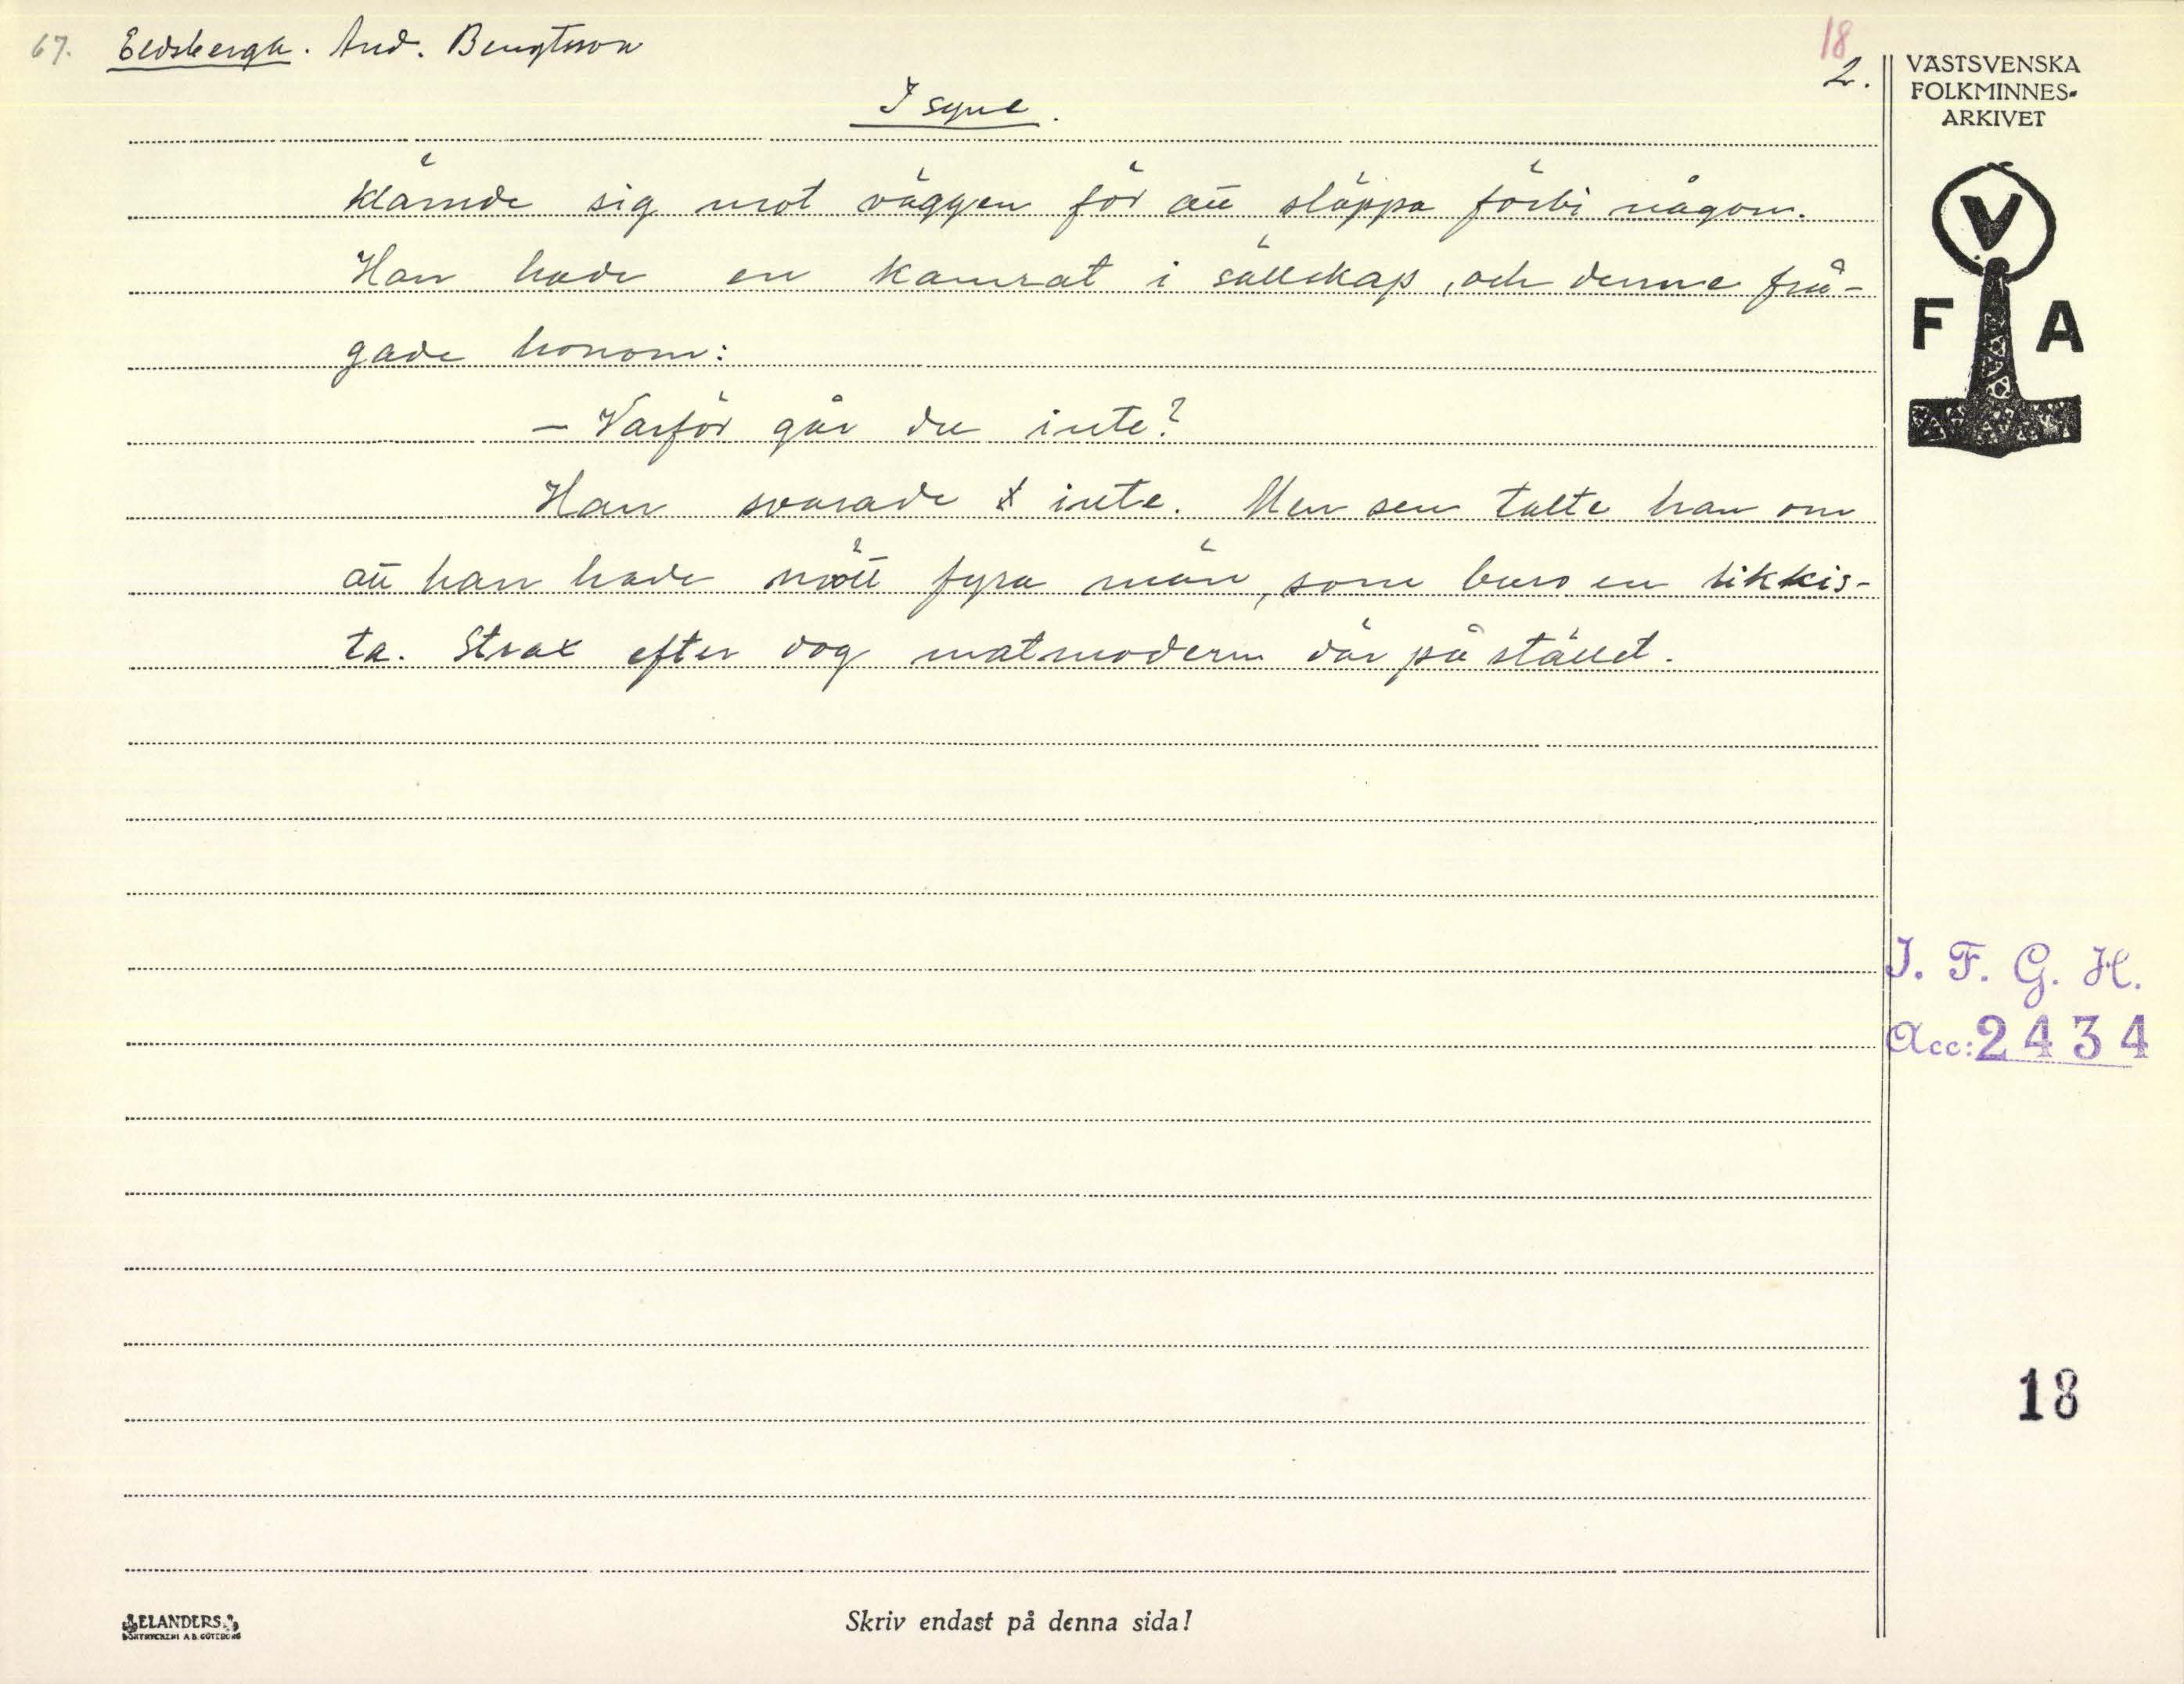 67. Eldsberga. And. Bengtsson
18
2.
I syne.
klämde sig mot väggen för att släppa förbi någon.
Han hade en kamrat i sällskap, och denne frå-
gade honom:
– Varför går du inte?
Han svarade inte. Men sen talte han om
att han hade mött fyra män, som buro en likkis-
ta. Strax efter dog matmodern där på stället.
VÄSTSVENSKA
FOLKMINNES-
ARKIVET
V
F A
I. F. G. H.
Acc: 2434
18
ELANDERS
BOKTRYCKERI A.B. GÖTEBORG
Skriv endast på denna sida!